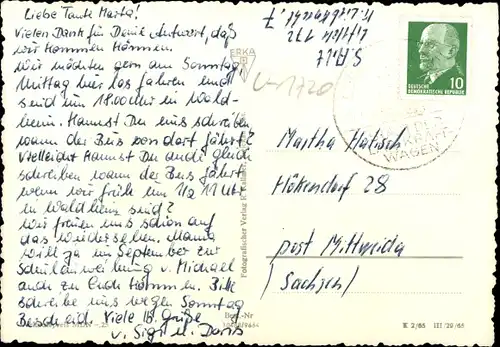 Liebe Tante Marta!
Vielen Dank für Deine Antwort, daß
wir kommen können.
Wir möchten gern am Sonntag
Mittag hier los fahren und
sind um 1800 Uhr in Wald-
heim. Kannst Du uns schreiben
wann der Bus von dort fährt?
Vielleicht kannst Du auch gleich
schreiben wann der Bus fährt
wenn wir früh um 1/2 11 Uhr
in Waldheim sind?
Wir freuen uns schon auf
das Wiedersehen. Mama
will ja im September zur
Schuldnweihung v. Michael
auch zu Euch kommen. Bitte
schreibe uns wegen Sonntag
Bescheid. Viele lb. Grüße
v. Sigi u. Doris
S. Ahlt
172
ERKA
V-1720
Fotografischer Verlag R.
Best.-Nr
10
DEUTSCHE
DEMOKRATISCHE REPUBLIK
WAGEN
Martha Hatisch
Höckendorf 28
post Mittweida
(Sachsen)
K 2/65 III/29/65